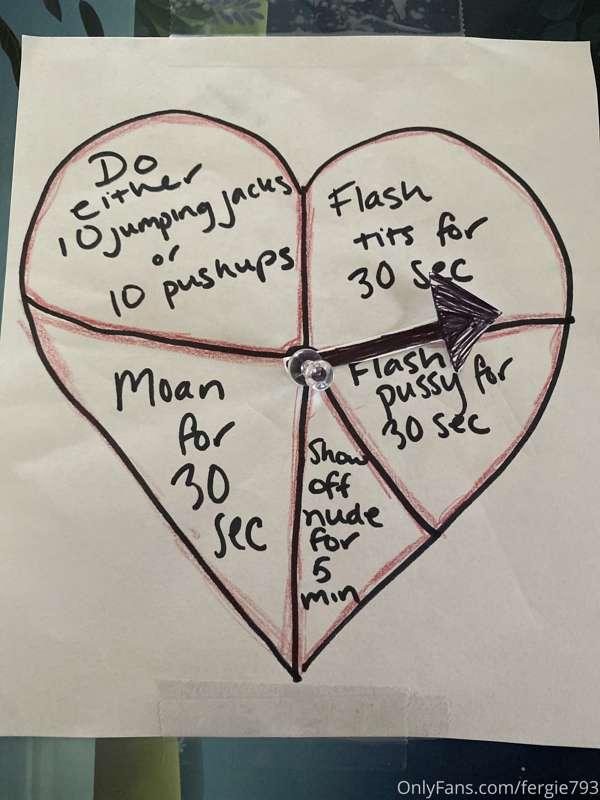 Do
either
10 jumping jacks
or
10 pushups
Flash
tits for
30 sec
Flash
pussy for
30 sec
Show
off
nude
for
5
min
Moan
for
30
sec
OnlyFans.com/fergie793